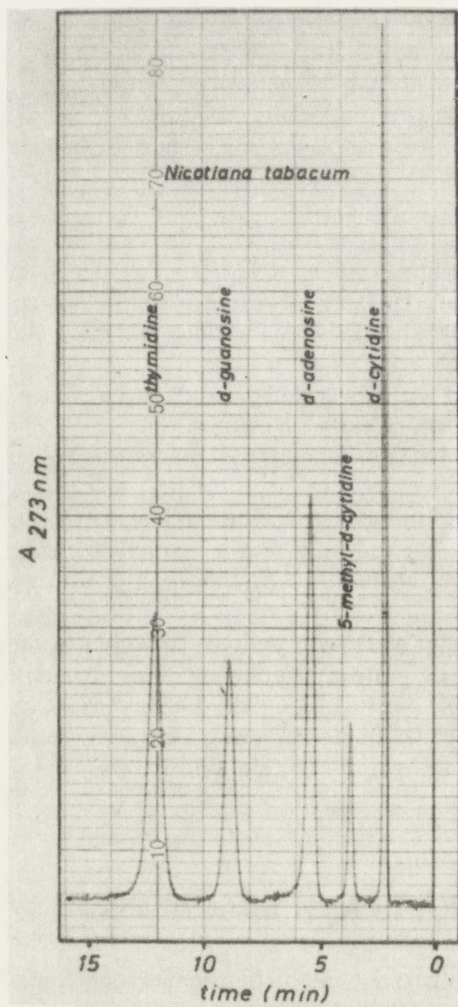 80
Nicotiana tabacum
70
60
thymidine
d-guanosine
d-adenosine
d-cytidine
50
5-methyl-d-cytidine
40
A 273 nm
30
20
10
15 10 5 0
time (min)